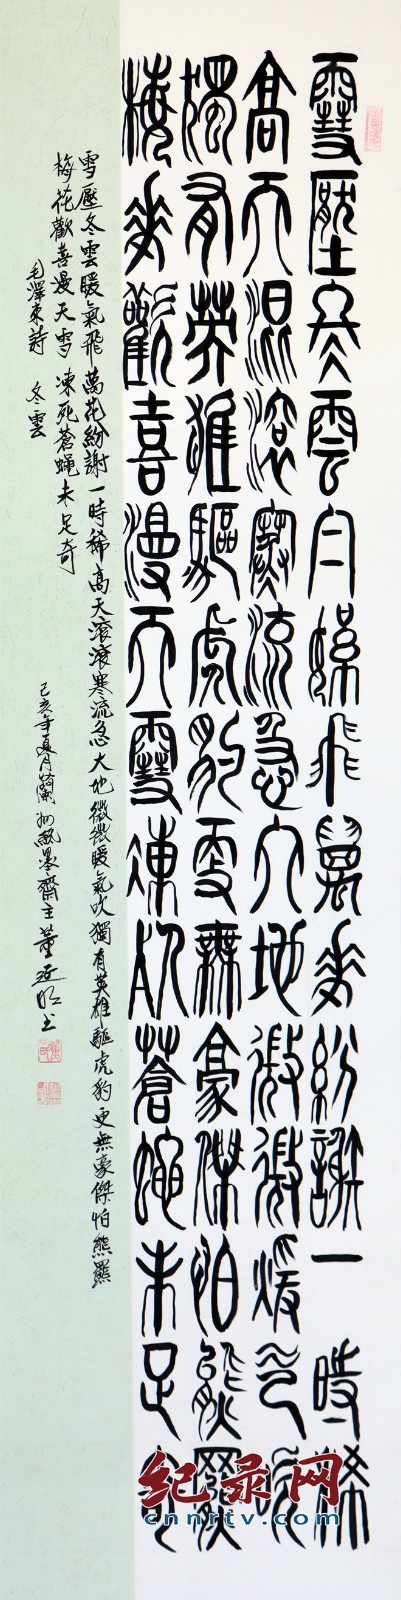 雪壓冬雲白絮飛萬花紛謝一時稀
高天滾滾寒流急大地微微暖氣吹
獨有英雄驅虎豹更無豪傑怕熊羆
梅花歡喜漫天雪凍死蒼蠅未足奇
雪壓冬雲暖氣飛萬花紛謝一時稀高天滾滾寒流急大地微微暖氣吹獨有英雄驅虎豹更無豪傑怕熊羆
梅花歡喜漫天雪凍死蒼蠅未足奇
毛澤東詩 冬雲
己亥年夏月蘭州飄墨齋主董延明书
纪录网
cnnrtv.com